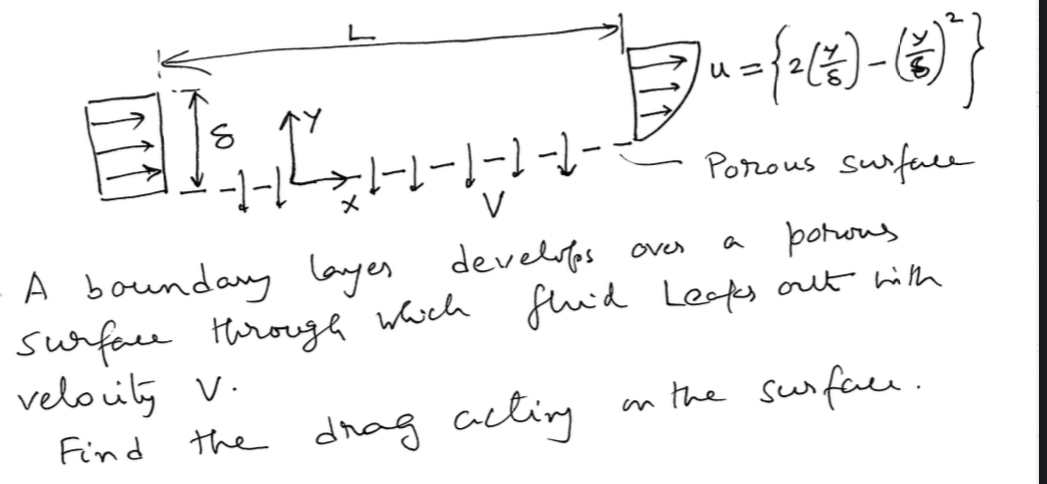 L
u = {2(y/δ) - (y/δ)²}
δ
Y
X
V
Porous surface
A boundary layer develops over a porous
surface through which fluid Leaks out with
velocity V.
Find the drag acting on the surface.